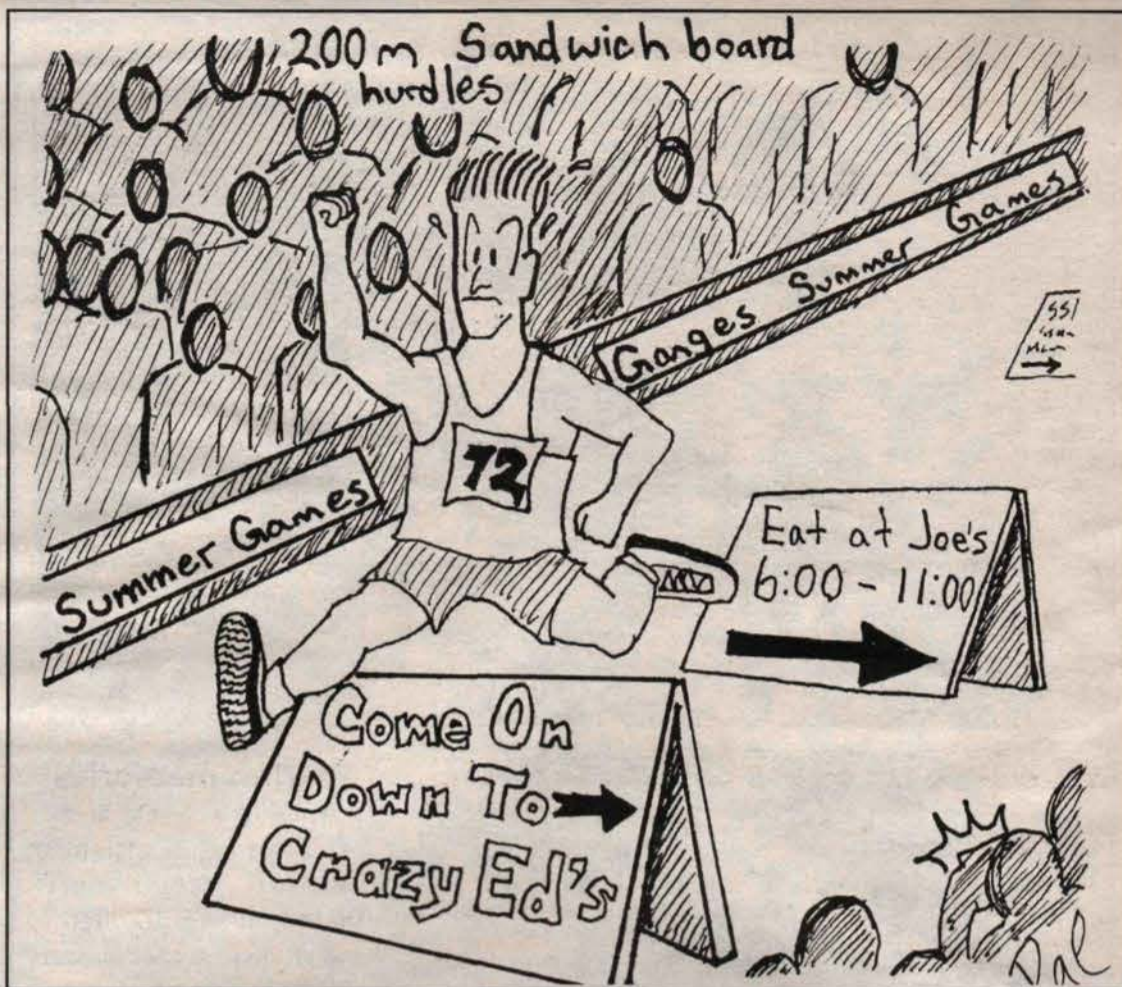 200m Sandwich board
hurdles
Ganges Summer Games
SSI
72
Summer Games
Eat at Joe's
6:00 - 11:00
Come On
Down To
Crazy Ed's
Dal